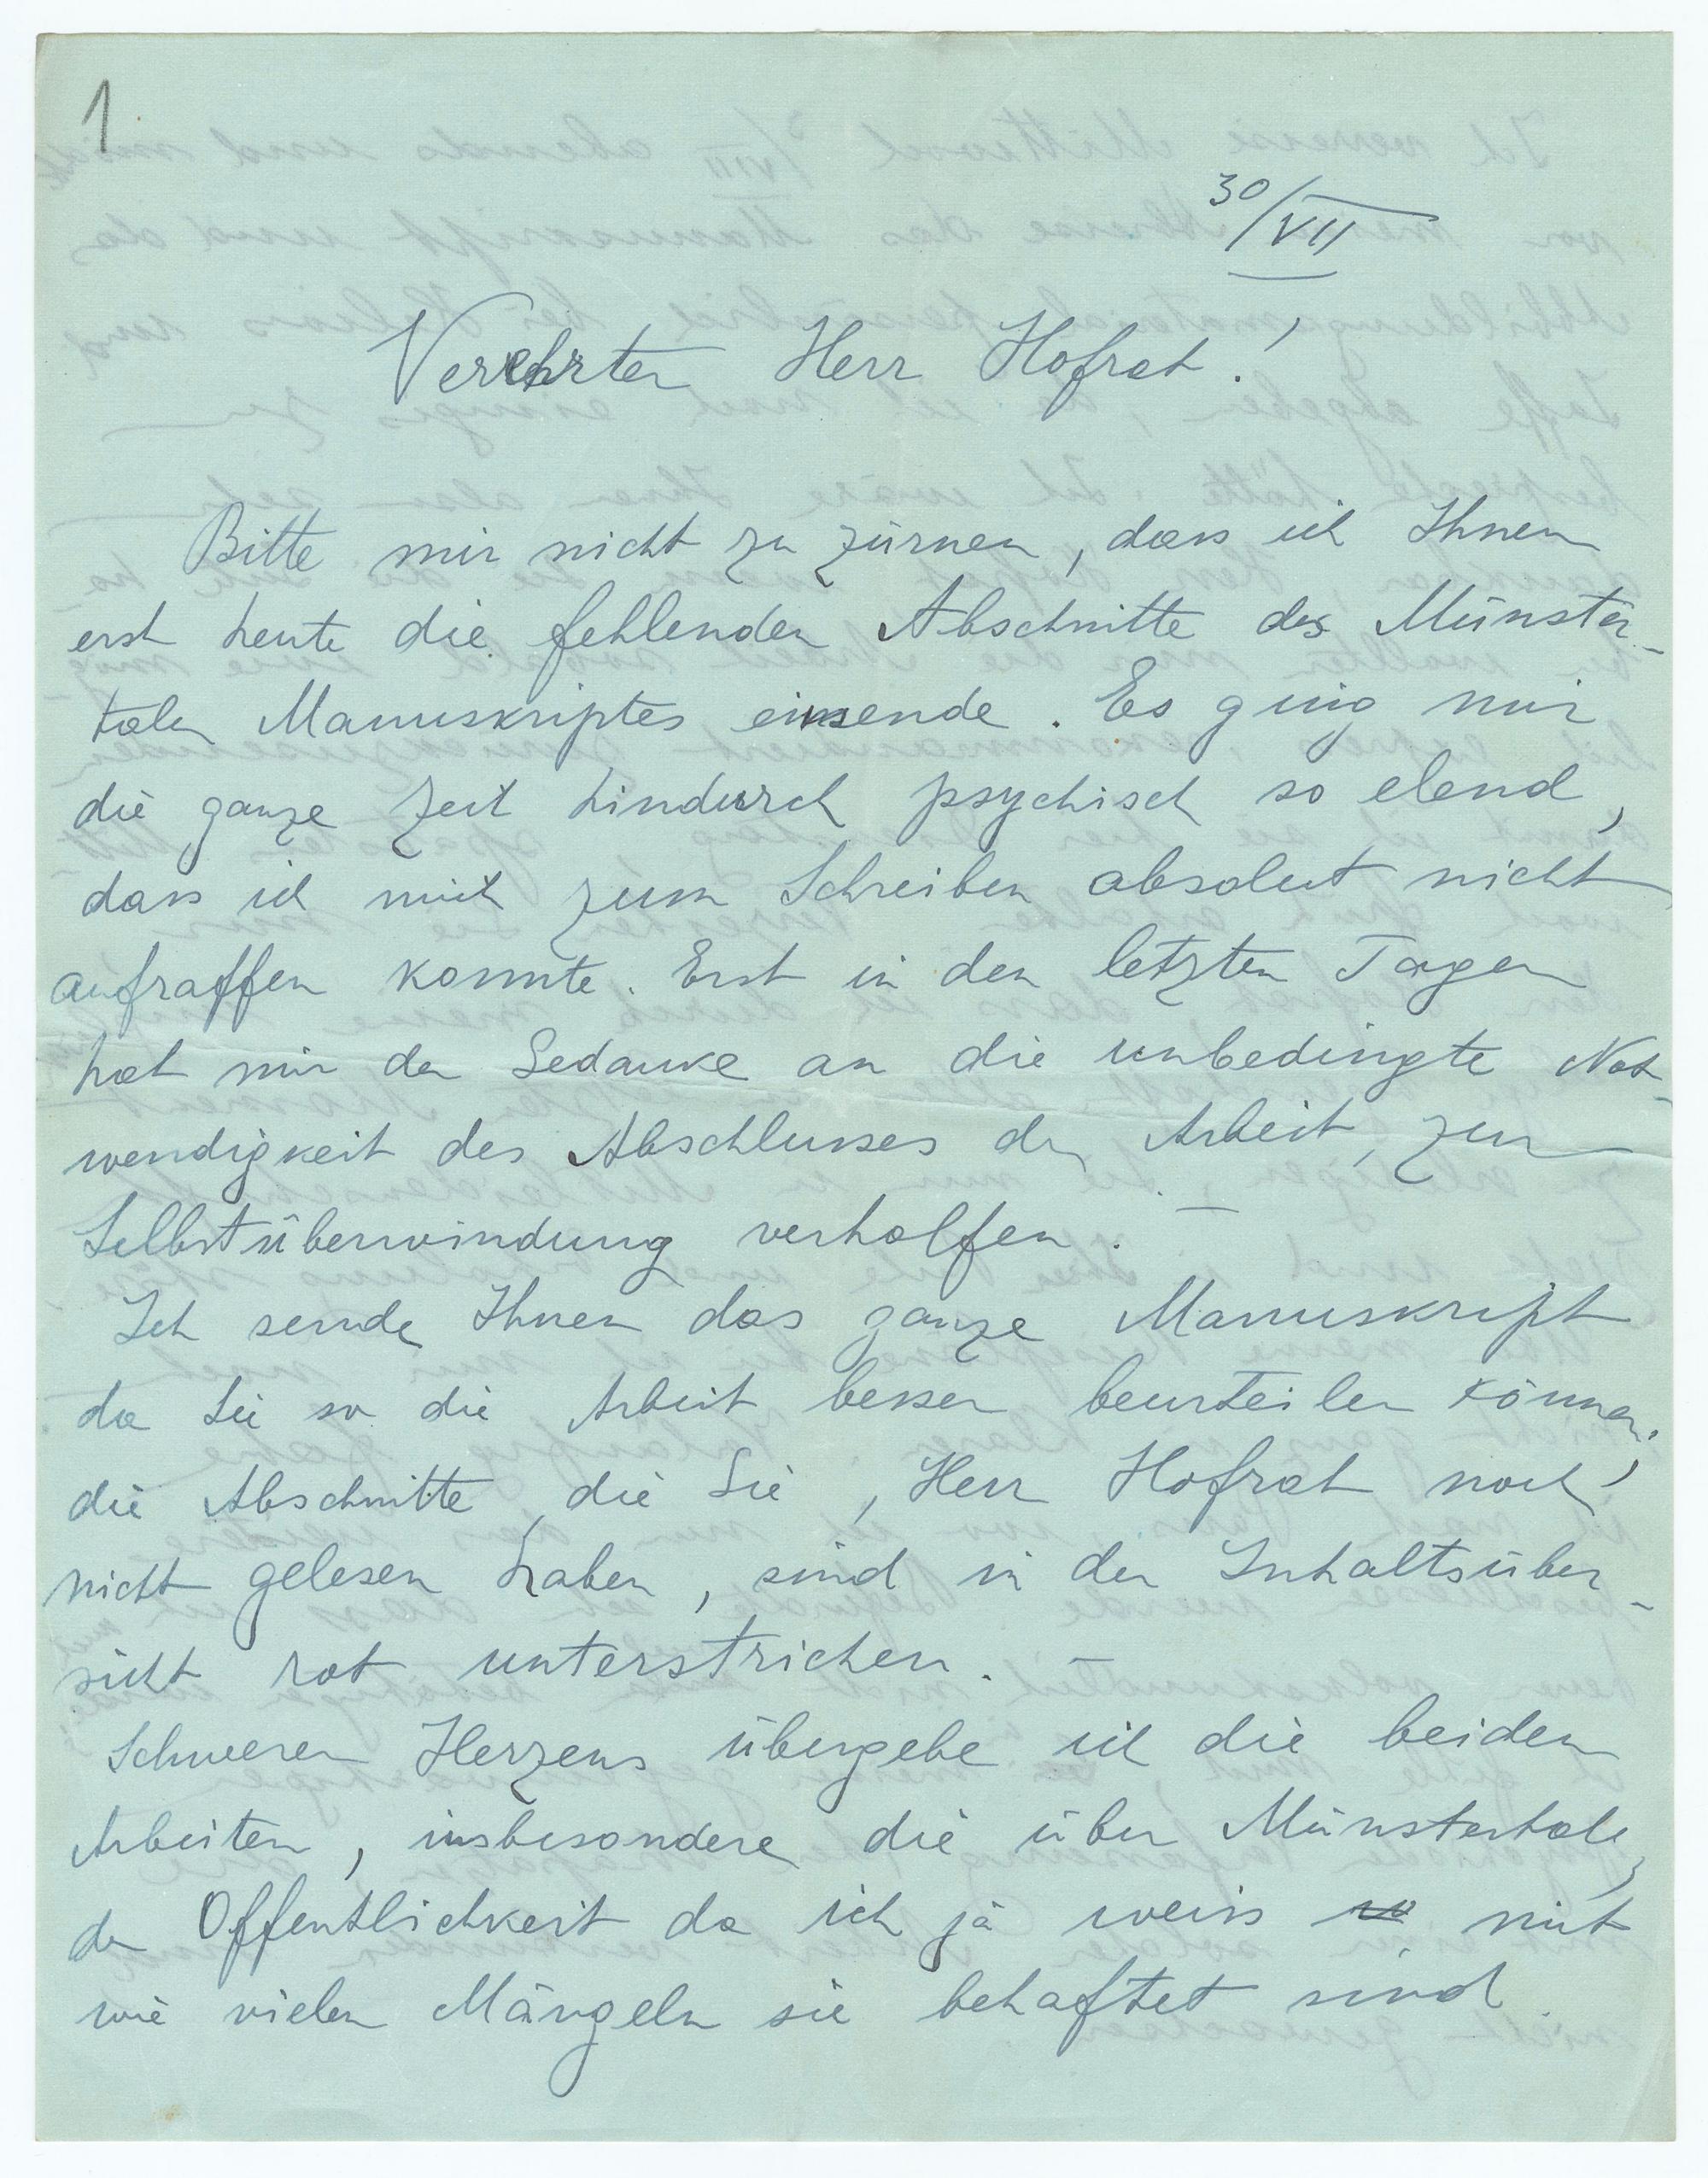 1
30/VII
Verehrter Herr Hofrat!
Bitte mir nicht zu zürnen, dass ich Ihnen
erst heute die fehlenden Abschnitte des Münster-
taler Manuskriptes einsende. Es ging mir
die ganze Zeit hindurch psychisch so elend,
dass ich mich zum Schreiben absolut nicht
aufraffen konnte. Erst in den letzten Tagen
hat mir der Gedanke an die unbedingte Not-
wendigkeit des Abschlusses der Arbeit, zur
Selbstüberwindung verholfen. –
Ich sende Ihnen das ganze Manuskript
da Sie so die Arbeit besser beurteilen können;
die Abschnitte, die Sie, Herr Hofrat noch
nicht gelesen haben, sind in der Inhaltsüber-
sicht rot unterstrichen. –
Schweren Herzens übergebe ich die beiden
Arbeiten, insbesondere die über Münstertal,
der Offentlichkeit da ich ja weiss mit
wie vielen Mängeln sie behaftet sind.